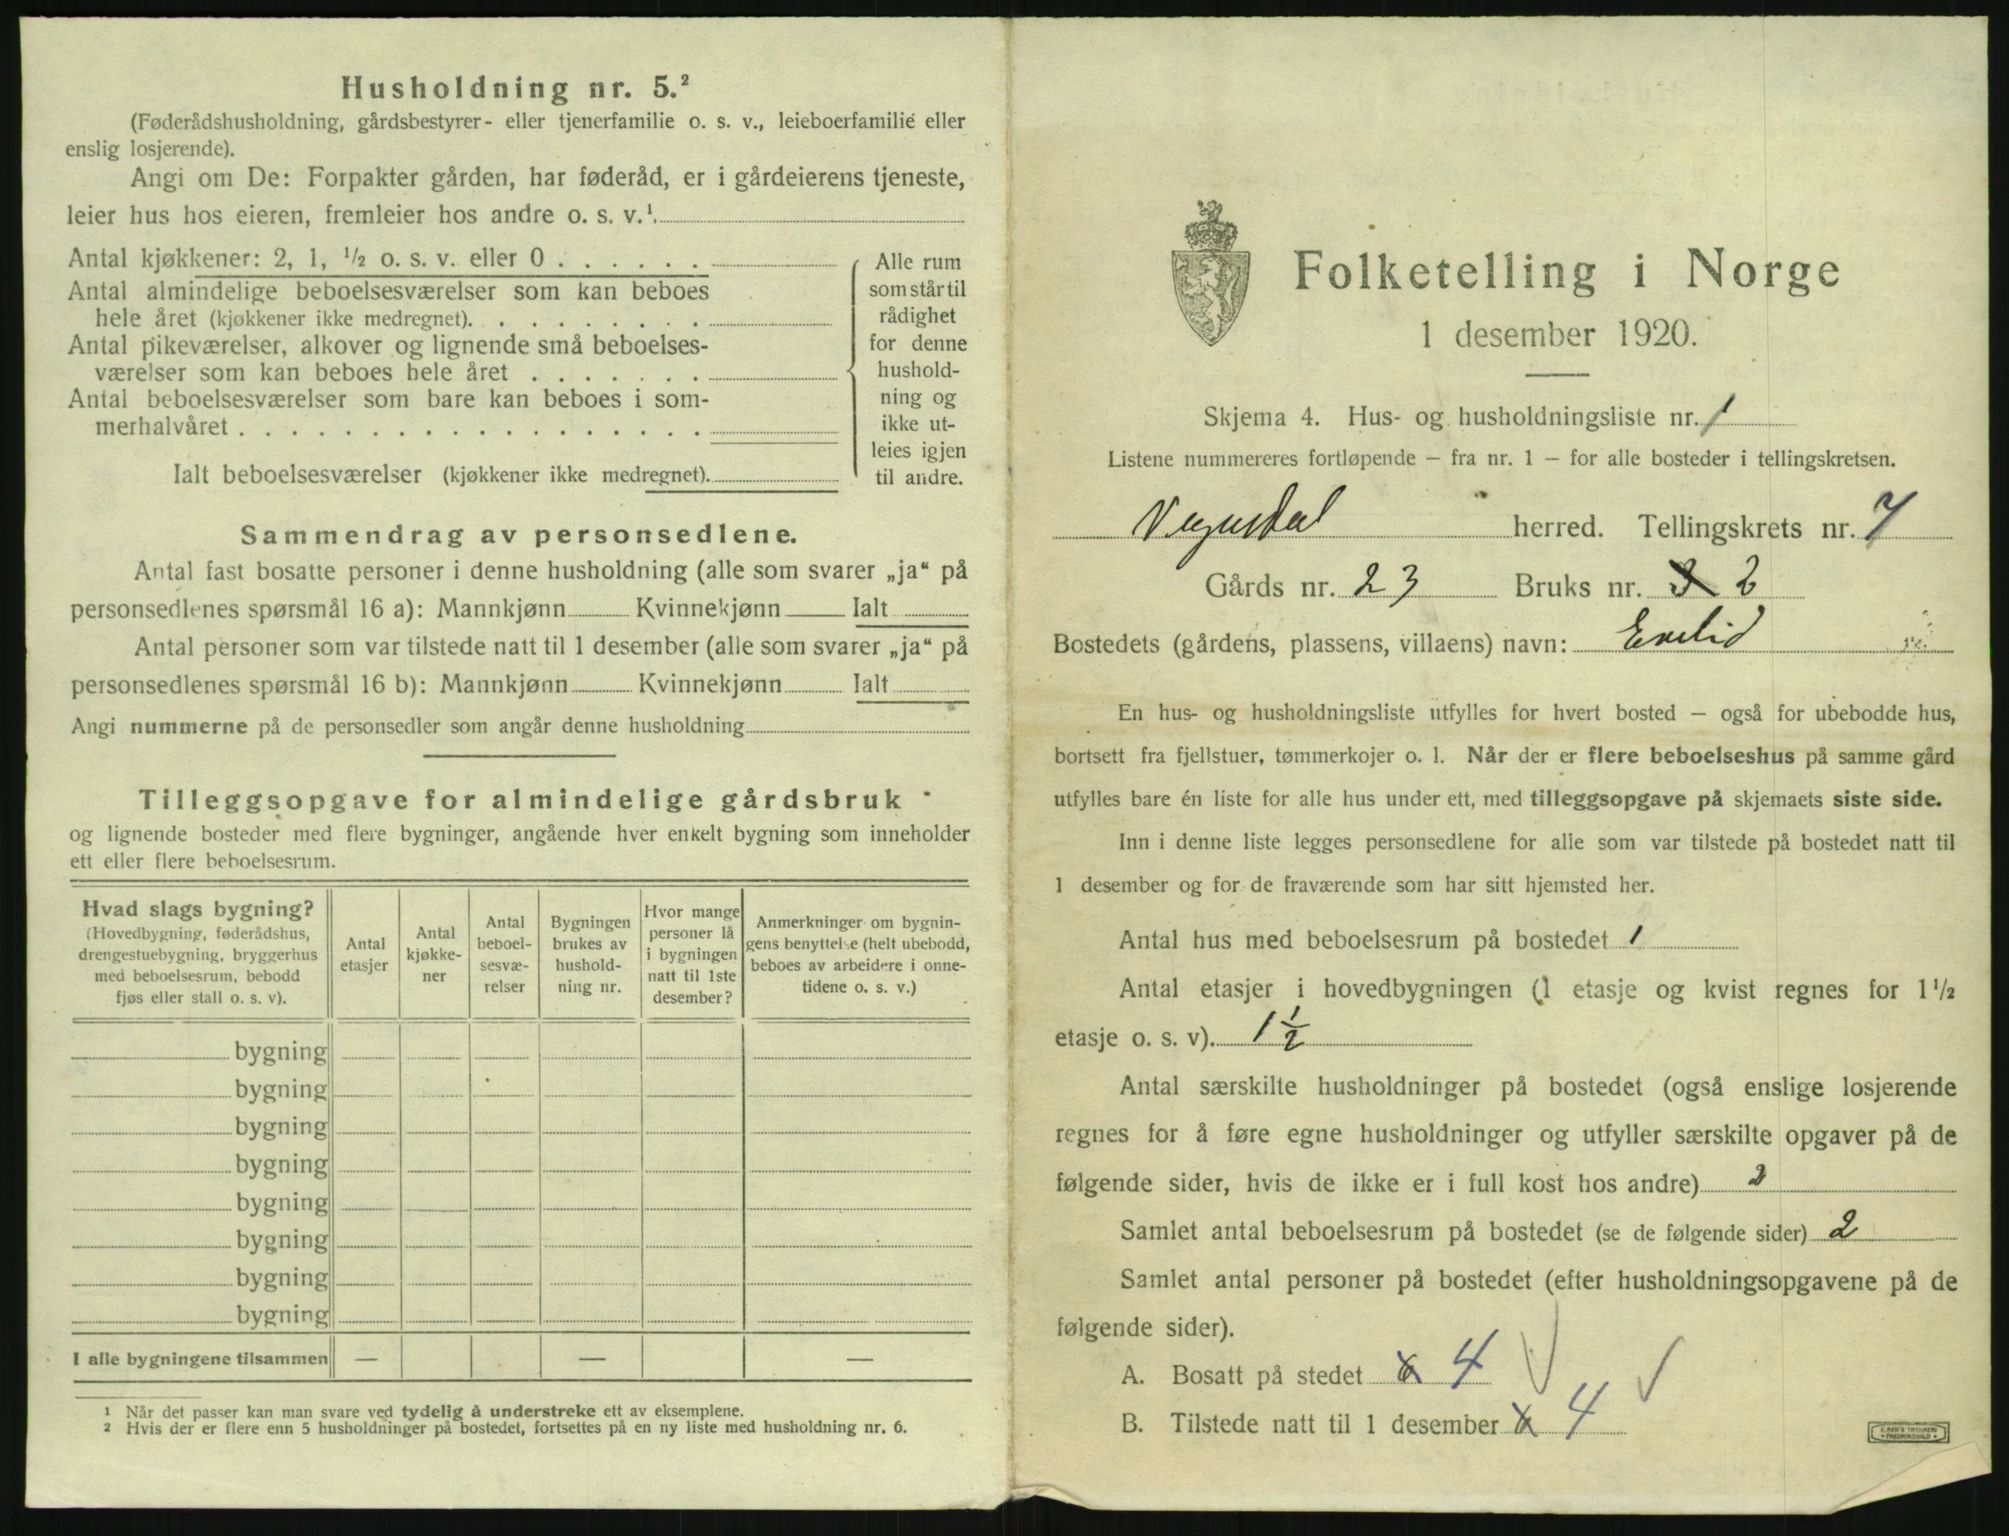 Husholdning nr. 5.²
(Føderådshusholdning, gårdsbestyrer- eller tjenerfamilie o. s. v., leieboerfamilie eller
enslig losjerende).
Angi om De: Forpakter gården, har føderåd, er i gårdeierens tjeneste,
leier hus hos eieren, fremleier hos andre o. s. v.¹.
Antal kjøkkener: 2, 1, ½ o. s. v. eller 0
Antal almindelige beboelsesværelser som kan beboes
hele året (kjøkkener ikke medregnet).
Antal pikeværelser, alkover og lignende små beboelses-
værelser som kan beboes hele året
Antal beboelsesværelser som bare kan beboes i som-
merhalvåret
Ialt beboelsesværelser (kjøkkener ikke medregnet).
Alle rum
som står til
rådighet
for denne
hushold-
ning og
ikke ut-
leies igjen
til andre.
Sammendrag av personsedlene.
Antal fast bosatte personer i denne husholdning (alle som svarer „ja“ på
personsedlenes spørsmål 16 a): Mannkjønn Kvinnekjønn Ialt
Antal personer som var tilstede natt til 1 desember (alle som svarer „ja“ på
personsedlenes spørsmål 16 b): Mannkjønn Kvinnekjønn Ialt
Angi nummerne på de personsedler som angår denne husholdning
Tilleggsopgave for almindelige gårdsbruk
og lignende bosteder med flere bygninger, angående hver enkelt bygning som inneholder
ett eller flere beboelsesrum.
Hvad slags bygning?
(Hovedbygning, føderådshus,
drengestuebygning, bryggerhus
med beboelsesrum, bebodd
fjøs eller stall o. s. v).
Antal
etasjer
Antal
kjøkke-
ner
Antal
beboel-
sesvæ-
relser
Bygningen
brukes av
hushold-
ning nr.
Hvor mange
personer lå
i bygningen
natt til 1ste
desember?
Anmerkninger om bygnin-
gens benyttelse (helt ubebodd,
beboes av arbeidere i onne-
tidene o. s. v.)
bygning
bygning
bygning
bygning
bygning
bygning
bygning
bygning
I alle bygningene tilsammen — — —
¹ Når det passer kan man svare ved tydelig å understreke ett av eksemplene.
² Hvis der er flere enn 5 husholdninger på bostedet, fortsettes på en ny liste med husholdning nr. 6.
Folketelling i Norge
1 desember 1920.
Skjema 4. Hus- og husholdningsliste nr. 1
Listene nummereres fortløpende – fra nr. 1 – for alle bosteder i tellingskretsen.
Vegusdal herred. Tellingskrets nr. 7
Gårds nr. 23 Bruks nr. 3 2
Bostedets (gårdens, plassens, villaens) navn:
En hus- og husholdningsliste utfylles for hvert bosted – også for ubebodde hus,
bortsett fra fjellstuer, tømmerkojer o. l. Når der er flere beboelseshus på samme gård
utfylles bare én liste for alle hus under ett, med tilleggsopgave på skjemaets siste side.
Inn i denne liste legges personsedlene for alle som var tilstede på bostedet natt til
1 desember og for de fraværende som har sitt hjemsted her.
Antal hus med beboelsesrum på bostedet 1
Antal etasjer i hovedbygningen (1 etasje og kvist regnes for 1½
etasje o. s. v). 1½
Antal særskilte husholdninger på bostedet (også enslige losjerende
regnes for å føre egne husholdninger og utfyller særskilte opgaver på de
følgende sider, hvis de ikke er i full kost hos andre) 2
Samlet antal beboelsesrum på bostedet (se de følgende sider) 2
Samlet antal personer på bostedet (efter husholdningsopgavene på de
følgende sider).
A. Bosatt på stedet 6 4
B. Tilstede natt til 1 desember 6 4